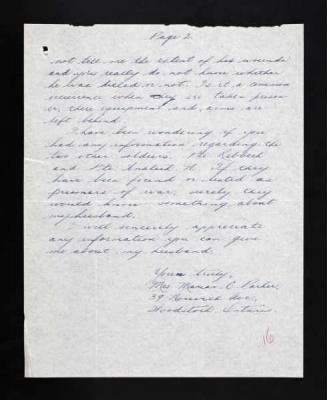 Page 2.
not tell me the extent of his wounds
and you really do not know whether
he was killed or not. Is it a common
occurrence when they are taken prison-
er, their equipment and arms are
left behind.
I have been wondering if you
had any information regarding the
two other soldiers. Pte
and Pte H. If they
have been found or listed as
prisoners of war, surely they
would know something about
my husband.
I will sincerely appreciate
any information you can give
me about my husband.
Yours truly,
Mrs Marian C. Parker,
39 Ave,
Woodstock, Ontario.
16